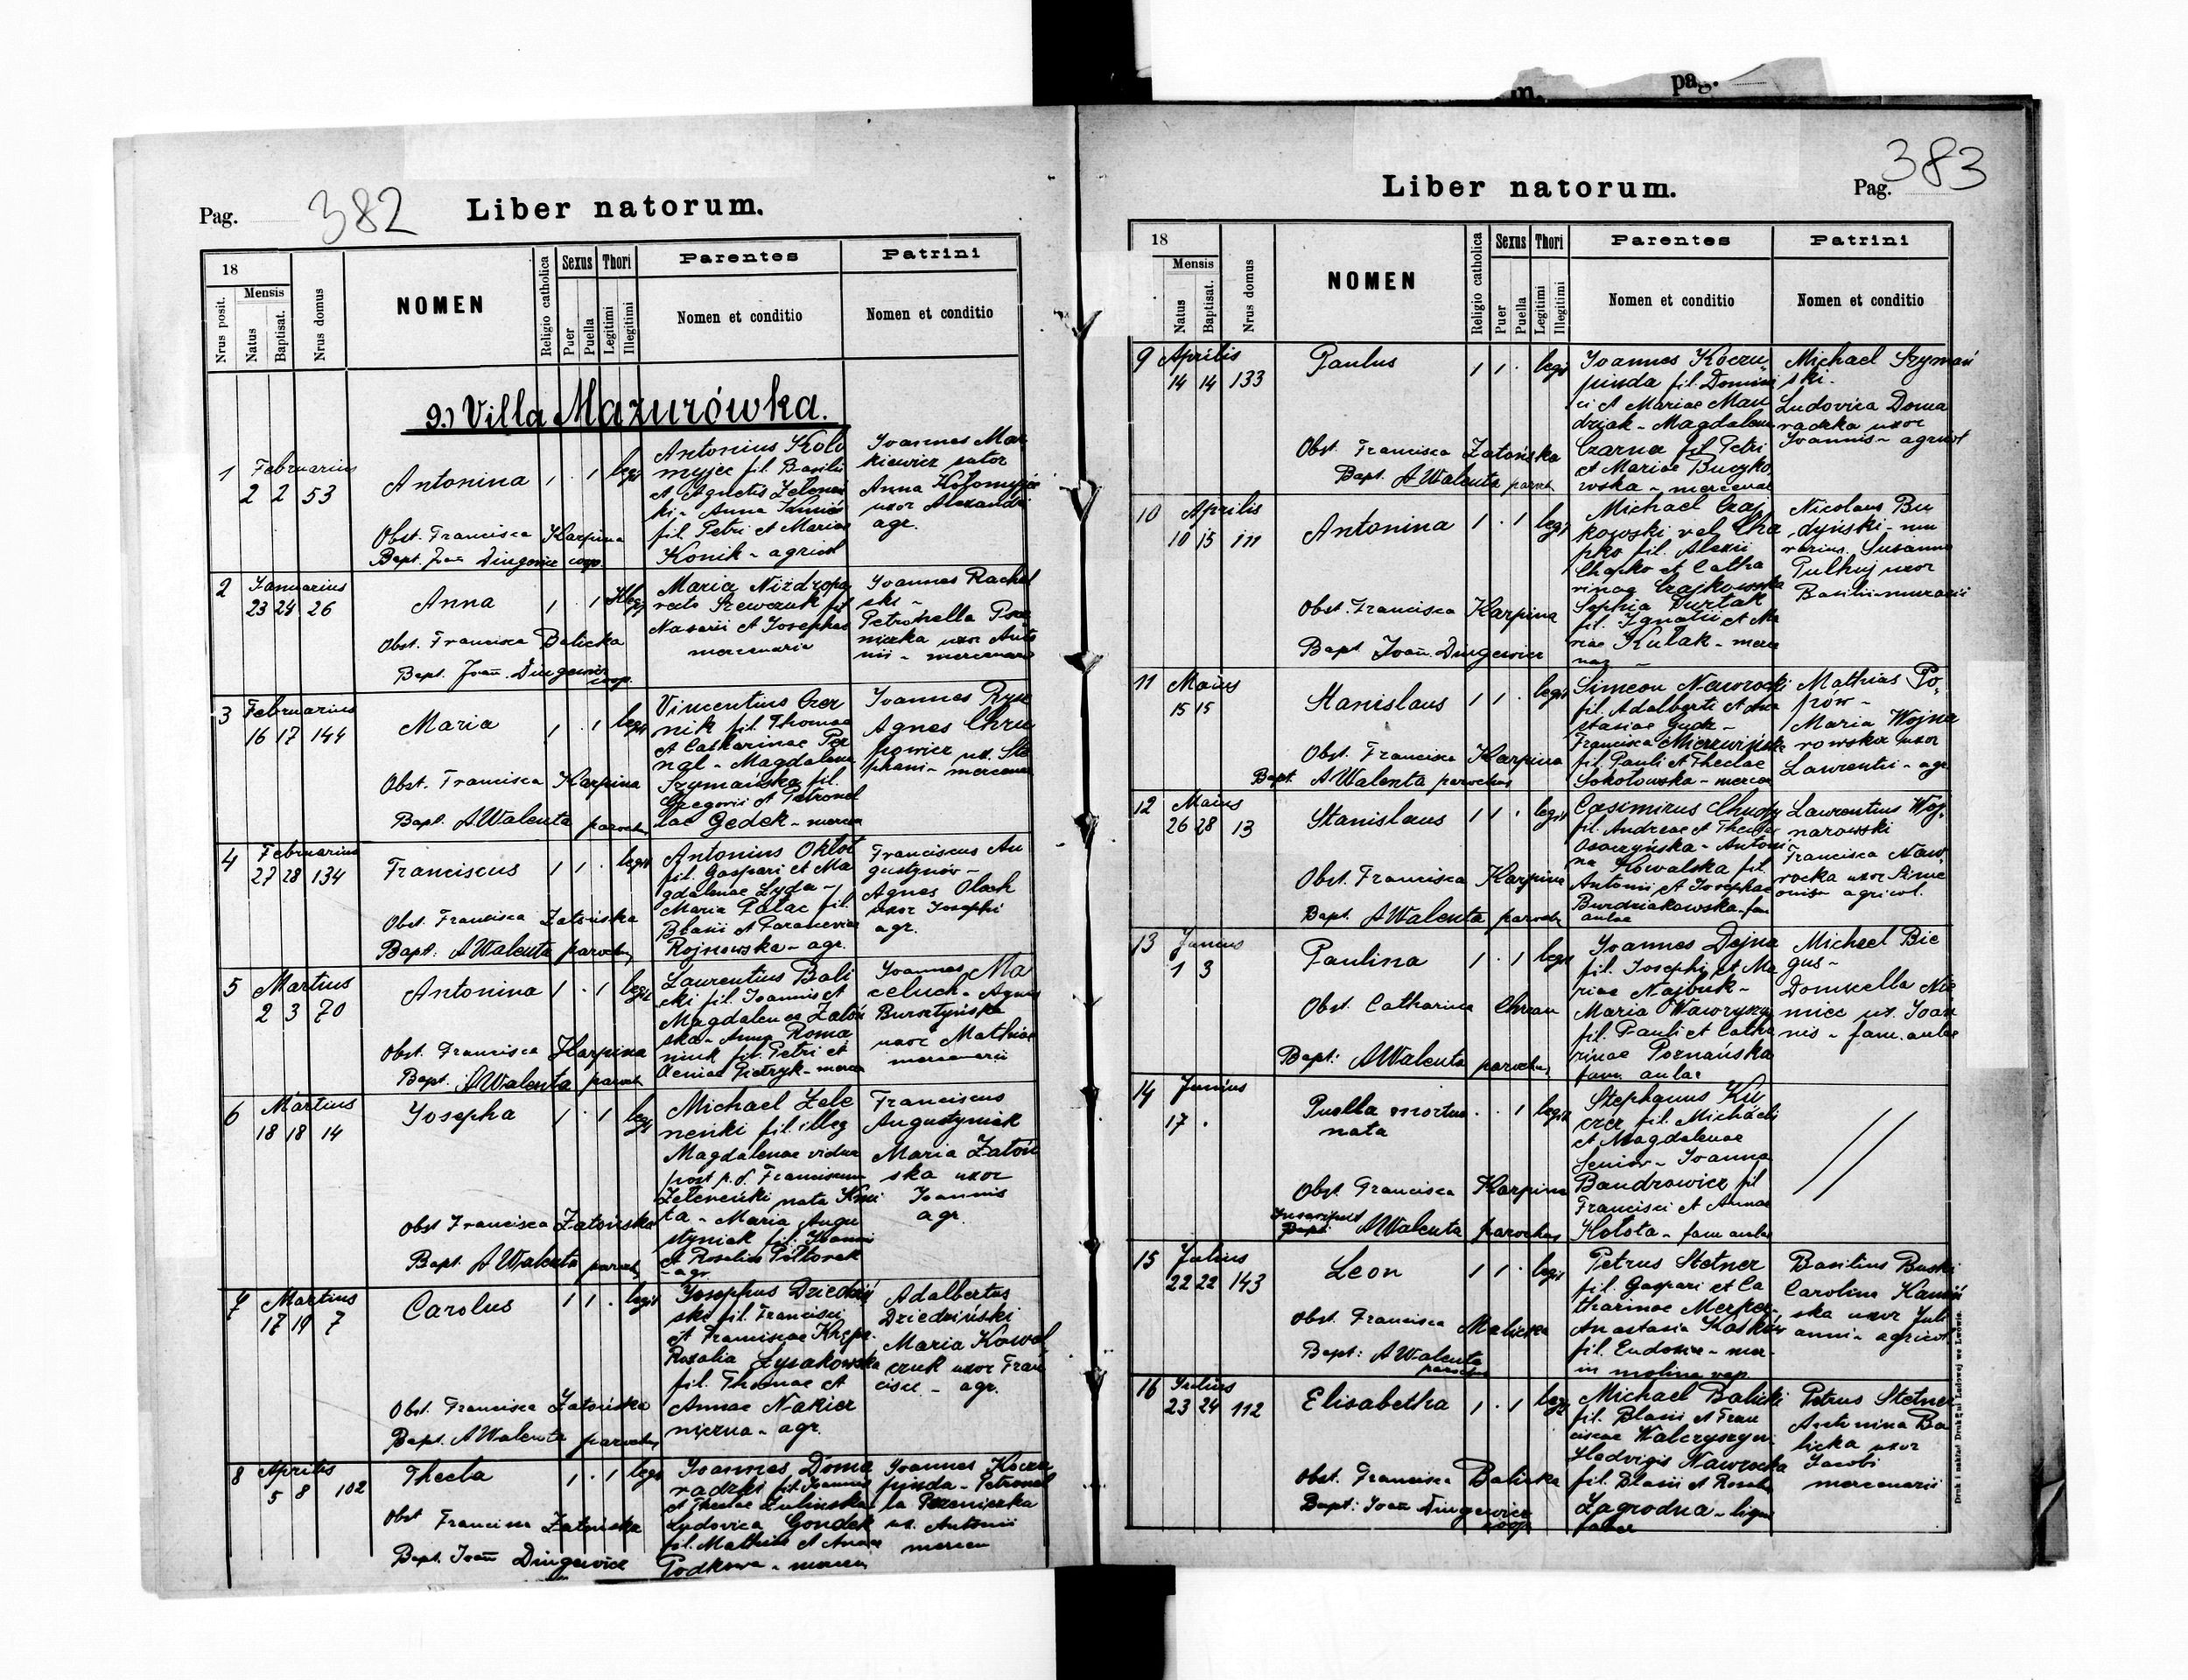 pag.
m.
Pag. 382
Liber natorum.
18
Nrus posit.
Mensis
Natus
Baptisat.
Nrus domus
NOMEN
Religio catholica
Sexus
Puer
Puella
Thori
Legitimi
Illegitimi
Parentes
Nomen et conditio
Patrini
Nomen et conditio
9.) Villa Mazurówka.
1 Februarius
2 2 53
Antonina 1 . 1 legt
Obst. Francisca Karpina
Bapt. Dingewicz coop.
Antonius Kolo
myjec fil. Basilii
et Agnetis
ki - Anna
fil. Petri et Mariae
Konik - agricol
Joannes Mar
kiewicz sutor
Anna Kołomyjec
uxor Alexandri
agr.
2 Januarius
23 24 26
Anna 1 . 1 Illeg
Obst. Francisca Balicka
Bapt. Joan. Dingewicz
coop.
Maria
Szewczuk fil
Nasarii et Josephae
mercenaria
Joannes Rachel
ski -
Petronella
niczka uxor Anto
nii - mercenarii
3 Februarius
16 17 144
Maria 1 . 1 legt
Obst. Francisca Karpina
Bapt. AWalenta parochus
Vincentius Czer
nik fil. Thomae
et Catharinae Per
nal - Magdalena
Szymańska fil.
Gregorii et Petronel
lae Gedek - mercen
Joannes
Agnes Chru
powicz ux. Ste
phani - mercenar
4 Februarius
27 28 134
Franciscus 1 1 . legit
Obst. Francisca Zatońska
Bapt: AWalenta parochus
Antonius Oktot
fil. Gaspari et Ma
gdalenae Lyda -
Maria Patac fil.
Blasii et Paraneviae
Rojnowska - agr.
Franciscus Au
gustynów -
Agnes Olach
uxor Josephi
agr.
5 Martius
2 3 70
Antonina 1 . 1 legt
Obst. Francisca Karpina
Bapt. AWalenta paroch
Laurentius Bali
cki fil. Joannis et
Magdalenae Zatoń
ska - Anna Roma
niuk fil. Petri et
Xeniae Pietryk - mercen
Joannes Ma
celuch - Agnes
Bursztyńska
uxor Mathiae
mercenarii
6 Martius
18 18 14
Josepha 1 . 1 legt
Obst Francisca Zatońska
Bapt. AWalenta paroch
Michael Zele
neńki fil. illeg
Magdalenae vidua
post p. d. Franciscum
Zeleneńki nata Kmi
ta - Maria Augu
styniak fil. Joannis
et Rosaliae Półtorak
- agr.
Franciscus
Augustyniak
Maria Zatoń
ska uxor
Joannis
agr.
7 Martius
17 19 7
Carolus 1 1 . legit
Obst. Francisca Zatońska
Bapt. AWalenta parochus
Josephus Dziedziń
ski fil. Francisci
et Franciscae
Rozalia Łysakowska
fil. Thomae et
Annae
- agr.
Adalbertus
Dziedziński
Maria Kowal
czuk uxor Fran
cisci - agr.
8 Aprilis
5 8 102
Thecla 1 . 1 legt
Obst Francisca Zatońska
Bapt. Joan Dingewicz
Joannes Doma
radzki fil. Joannis
et Theclae Zulinska
Ludovica Gondek
fil. Mathiae et Annae
Podkowa - mercen
Joannes Koczu
pinda - Petronel
la Pszeniczka
ux. Antonii
mercen
Liber natorum.
Pag. 383
18
Mensis
Natus
Baptisat.
Nrus domus
NOMEN
Religio catholica
Sexus
Puer
Puella
Thori
Legitimi
Illegitimi
Parentes
Nomen et conditio
Patrini
Nomen et conditio
9 Aprilis
14 14 133
Paulus 1 1 . legt
Obst. Francisca Zatońska
Bapt. AWalenta paroch
Joannes Koczu
pinda fil. Domini
ci et Mariae Man
dziak - Magdalena
Czarna fil. Petri
et Mariae Buczko
wska - mercenar
Michael Szymań
ski -
Ludovica Doma
radzka uxor
Joannis - agricol
10 Aprilis
10 15 111
Antonina 1 . 1 legt
Obst. Francisca Karpina
Bapt. Joan. Dingewicz
Michael Czaj
kowski vel Cha
pko fil. Alexii
Chapko et Catha
rinae Czajkowska
Sophia Durtak
fil. Ignatii et Ma
riae Kułak - merce
nar -
Nicolaus Bu
dyński - mu
rarius. Susanna
Pulkuj uxor
Basilii - murarii
11 Maius
15 15
Stanislaus 1 1 . legit
Obst. Francisca Karpina
Bapt. AWalenta parochus
Simeon Nawrocki
fil. Adalberti et Ana
stasiae Gydz -
Francisca Mierzwińska
fil. Pauli et Theclae
Sokołowska - mercen
Mathias Po
pów -
Maria Wojna
rowska uxor
Laurentii - agr
12 Maius
26 28 13
Stanislaus 1 1 . legit
Obst. Francisca Karpina
Bapt. AWalenta paroch
Casimirus Chudy
fil. Andreae et Theclae
Osoczyńska - Antoni
na Kowalska fil.
Antonii et Josephae
Burdziakowska - fam
aulae
Laurentius Woj
narowski
Francisca Naw
rocka uxor Sime
onis - agricol.
13 Junius
1 3
Paulina 1 . 1 legt
Obst. Catharina Chruan
Bapt: AWalenta parochus
Joannes Dejna
fil. Josephi et Ma
riae Najbuk -
Maria Wawryszyn
fil. Pauli et Catha
rinae Poznańska
fam. aulae
Michael Bie
gus -
Domicella Nie
miec ux. Joan
nis - fam. aulae
14 Junius
17 .
Puella mortua . . 1 legit
nata
Obst Francisca Karpina
Inscripsit
Bapt. AWalenta parochus
Stephanus Ku
czer fil. Michaeli
et Magdalenae
Senior - Joanna
Bandrowicz fil
Francisci et Annae
Hołota - fam aulae
15 Julius
22 22 143
Leon 1 1 . legit
Obst. Francisca Malicka
Bapt: AWalenta
parochus
Petrus Stetner
fil. Gaspari et Ca
tharinae
Anastasia Kaśków
fil. Eudosiae - mer-
in molina vap.
Basilius Buski
Carolina Kamiń
ska uxor Juli
anni - agricol
16 Julius
23 24 112
Elisabetha 1 . 1 legt
Obst. Francisca Balicka
Bapt: Joan Dingewicz
coop
Michael Balicki
fil. Blasii et Fran
ciscae Walczyszyn
Hedvigis Nawrocka
fil. Blasii et Rosalia
Zagrodna - ligni
faber
Petrus Stetner
Antonina Ba
licka uxor
Jacobi
mercenarii